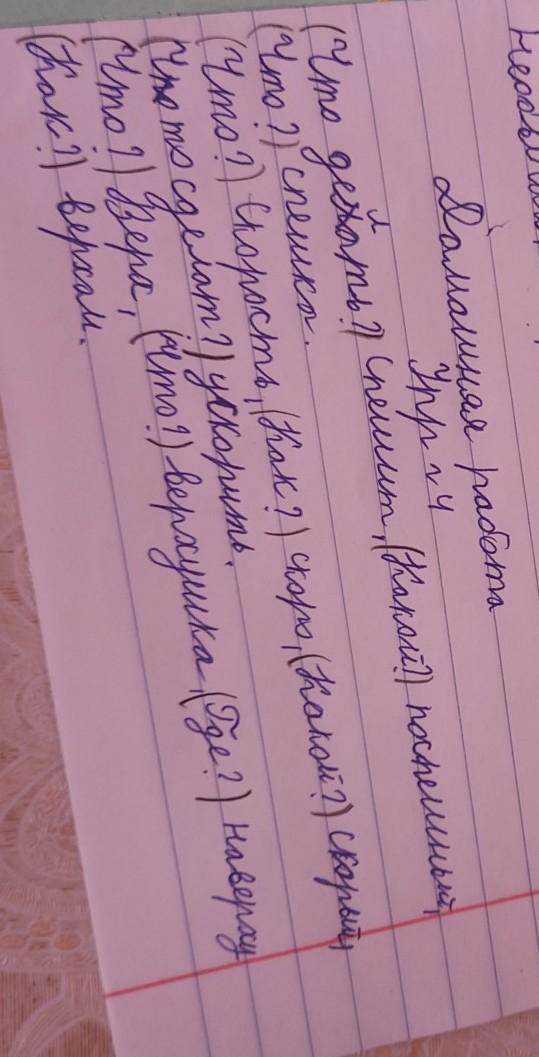 Домашняя работа
Упр 4
(Что делать?) Спешит, (Какой?) поспешный,
(Что?) спешка.
(Что?) Скорость, (Как?) скоро, (Какой?) скорый,
Что сделат?) ускорить.
(Что?) Верх, (Что?) верхушка, (Где?) наверху
(Как?) верхом.